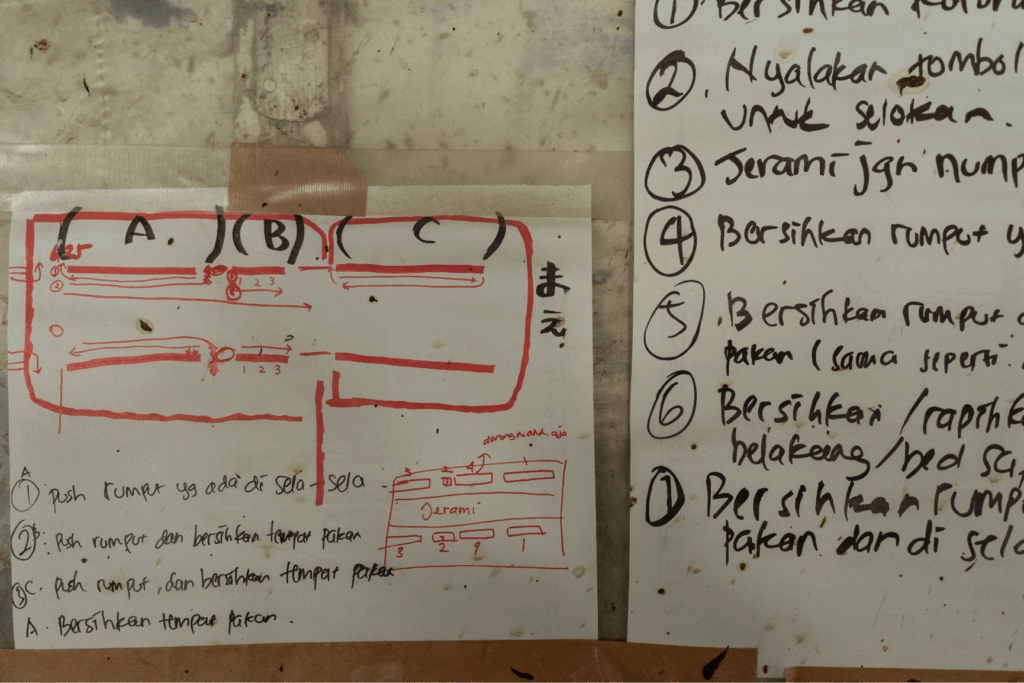 ( A ) (B) ( C )
1 2 3
まえ
1 2 3
A
① push rumput yg ada di sela-sela
② B: push rumput dan bersihkan tempat pakan
③ C. push rumput, dan bersihkan tempat pakan
A. Bersihkan tempat pakan.
3 2 4 1
Jerami
3 2 1
① Bersihkan
②. Nyalakan tombol
untuk selokan.
③ Jerami jgn nump
④ Bersihkan rumput y
⑤ Bersihkan rumput
pakan (sama seperti
⑥ Bersihkan /rapihk
belakang/bed sa
① Bersihkan rump
pakan dan di sela